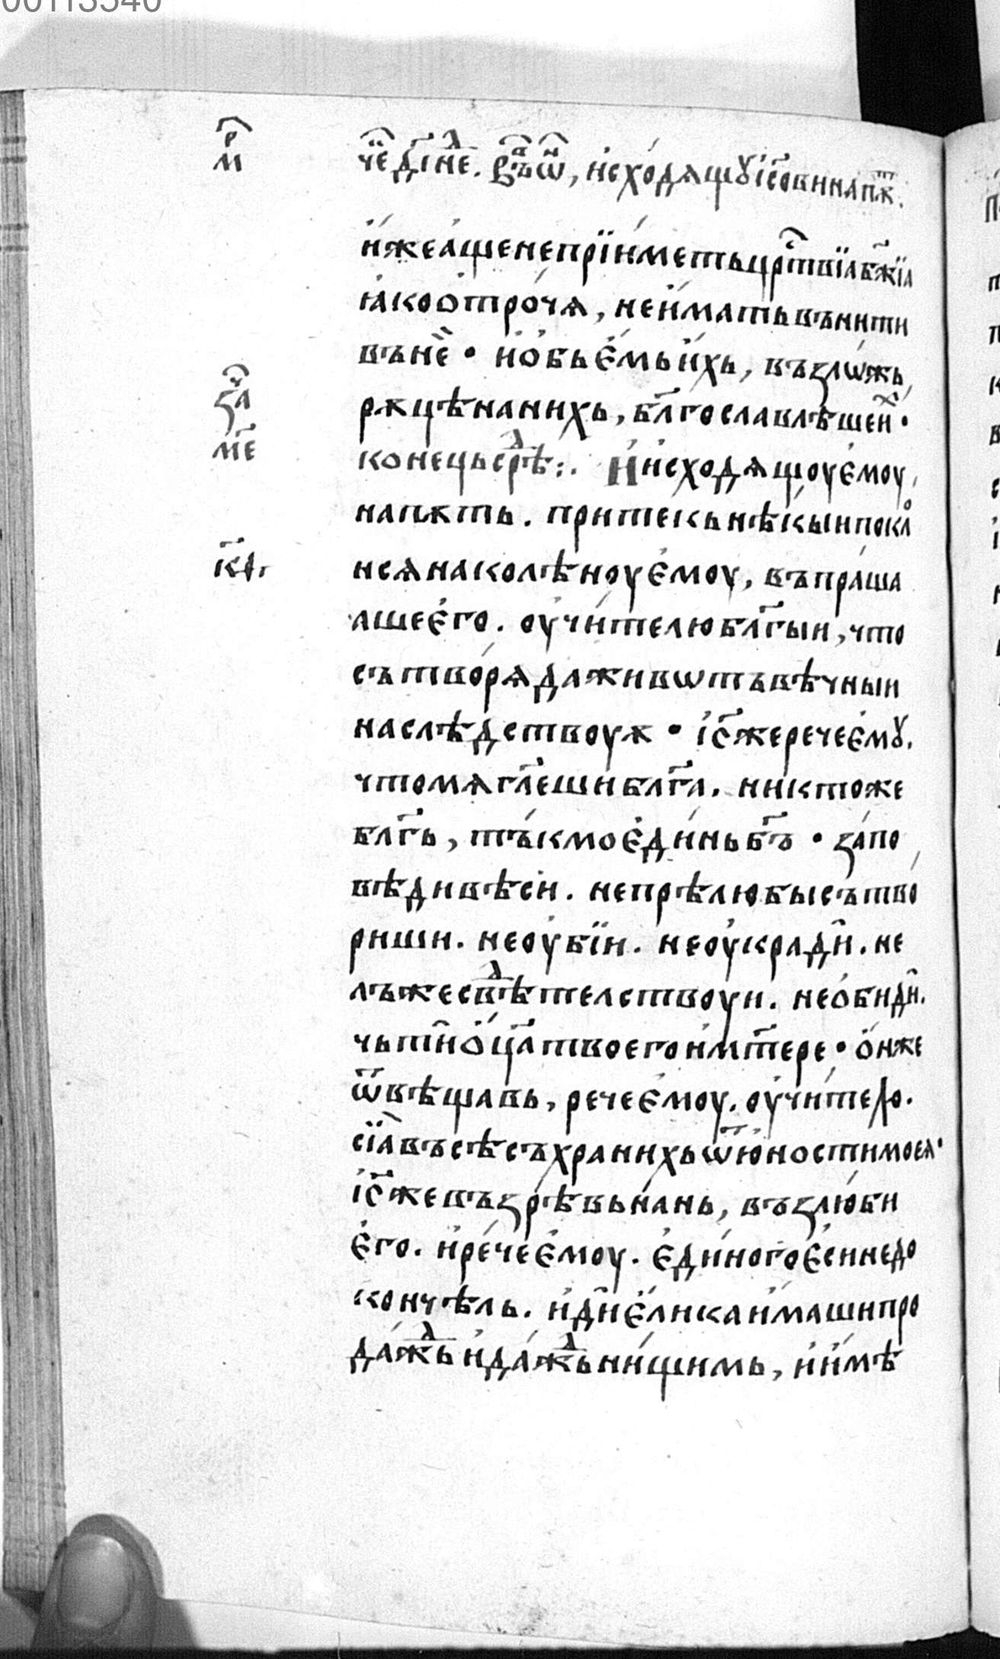 00113540
мр҇ че҇ дг҃ не҇л. въ҇ ѿн, и҆схо́дѧщꙋ і҆с҃ови на пѫ҇т.
и҆́же а҆ще не прїи́меть цр҇твїа бж҃їа
ꙗ҆ко ѻ҆троча, не и҆́мать вънити
въ не̏ • и҆ ѻ҆бье́мь и҆́хь, възлѡжь
зач҇ рѫцѣ на нихь, бл҃гославлѣше и҆х •
м҃е конець срѣ҇д :. И҆ исходѧщоу є҆моу,
на пѫть. притекь нѣкыи и покло
к҃а. нсѧ на колѣноу є҆моу, въпраша
аше є҆го. оу҆чи́телю бл҃гыи, что
сътворѧ да животъ вѣчныи
наслѣдствоуѫ • і҆с҃ же рече є҆мꙋ.
что мѧ гл҃еши бл҃га. никтоже
бл҃гь, тъкмо є҆ди́нь б҃ъ • за́по
вѣди вѣси. не прѣлюбы сътво
риши. не оу҆бїи. не оу҆кради. не
лъжесвѣ҇дтелствоуи. не ѻ҆биди.
чьти ѻ҆ц҃а твоего и҆ мт҃ере • ѻ҆н же
ѿвѣщавь, рече є҆моу. оу҆чи́телю.
сїа въсѣ съхранихь ѿ ю҆ности моеѧ •
і҆с҃ же възрѣвь на́нь, възлюби
є҆го. и҆ рече є҆моу. є҆ди́ного є҆си недо
кончѣль. и҆ди є҆лика и҆маши про
даждь и҆ да́ждь ни́щимь, и҆ и҆мѣ